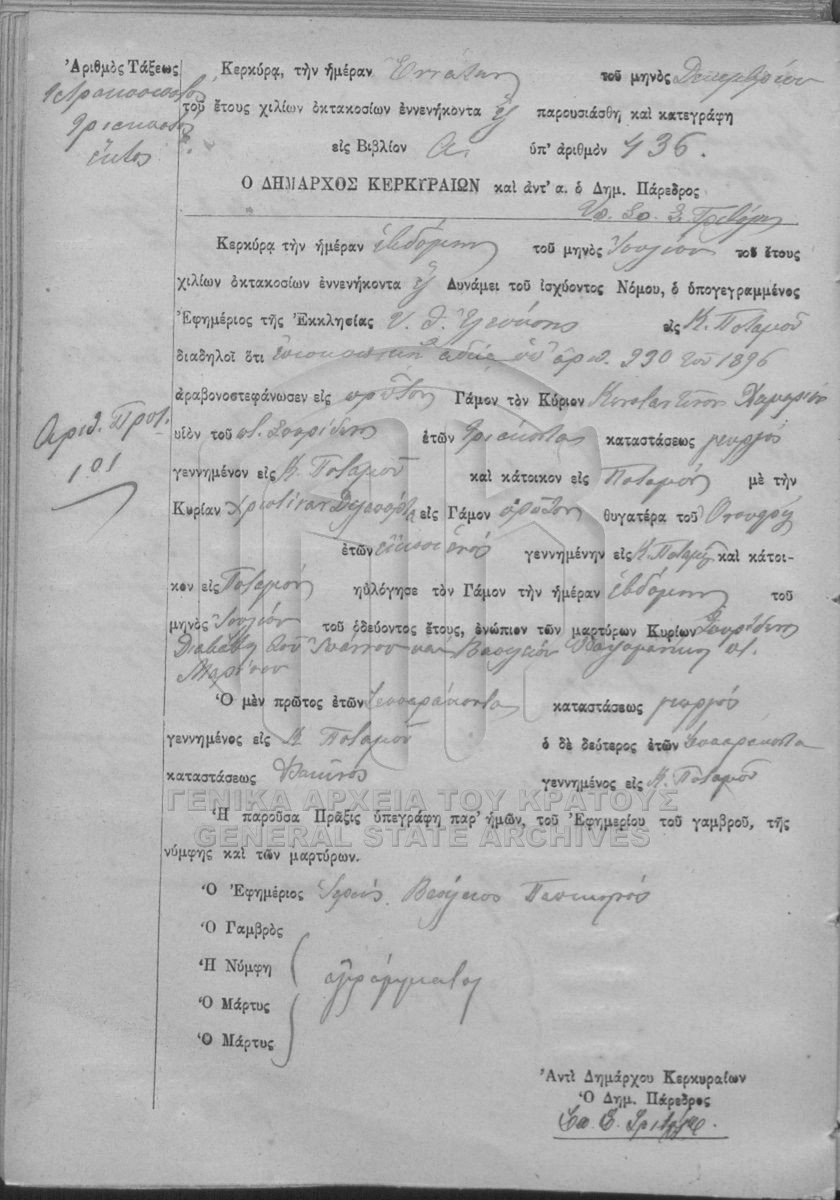 Ἀριθμὸς Τάξεως
Τετρακοσιοστὸς
Τριακοστὸς
ἕκτος
Κερκύρᾳ, τὴν ἡμέραν Ἐννάτην τοῦ μηνὸς Δεκεμβρίου
τοῦ ἔτους χιλίων ὀκτακοσίων ἐννενήκοντα ἓξ παρουσιάσθη καὶ κατεγράφη
εἰς Βιβλίον Α. ὑπ' ἀριθμὸν 436.
Ο ΔΗΜΑΡΧΟΣ ΚΕΡΚΥΡΑΙΩΝ καὶ ἀντ' α. ὁ Δημ. Πάρεδρος
Κερκύρᾳ τὴν ἡμέραν ἑβδόμην τοῦ μηνὸς Ἰουλίου τοῦ ἔτους
χιλίων ὀκτακοσίων ἐννενήκοντα ἓξ Δυνάμει τοῦ ἰσχύοντος Νόμου, ὁ ὑπογεγραμμένος
Ἐφημέριος τῆς Ἐκκλησίας Υ. Θ. εἰς Κ. Ποταμοῦ
διαδηλοῖ ὅτι ἐπισκοπικῇ ἀδείᾳ ὑπ' ἀριθ. 230 τοῦ 1896
ἀραβονοστεφάνωσεν εἰς πρῶτον Γάμον τὸν Κύριον Κωνσταντῖνον
Ἀριθ. Πρωτ.
101
υἱὸν τοῦ ποτ. Σπυρίδωνος ἐτῶν τριάκοντα καταστάσεως γεωργὸς
γεννημένον εἰς Κ. Ποταμοῦ καὶ κάτοικον εἰς Ποταμὸν μὲ τὴν
Κυρίαν Χριστίναν εἰς Γάμον πρῶτον θυγατέρα τοῦ Ὀνουφρίου
ἐτῶν εἴκοσι ἑνὸς γεννημένην εἰς Κ. Ποταμοῦ καὶ κάτοι-
κον εἰς Ποταμὸν ηὐλόγησε τὸν Γάμον τὴν ἡμέραν ἑβδόμην τοῦ
μηνὸς Ἰουλίου τοῦ ὁδεύοντος ἔτους, ἐνώπιον τῶν μαρτύρων Κυρίων Σπυρίδωνος
τοῦ Ἰωάννου καὶ Βασιλείου ποτ.
Μαρίνου
Ὁ μὲν πρῶτος ἐτῶν τεσσαράκοντα καταστάσεως γεωργὸς
γεννημένος εἰς Κ. Ποταμοῦ ὁ δὲ δεύτερος ἐτῶν τεσσαράκοντα
καταστάσεως γεννημένος εἰς Κ. Ποταμοῦ
ΓΕΝΙΚΑ ΑΡΧΕΙΑ ΤΟΥ ΚΡΑΤΟΥΣ
GENERAL STATE ARCHIVES
Ἡ παροῦσα Πρᾶξις ὑπεγράφη παρ' ἡμῶν, τοῦ Ἐφημερίου τοῦ γαμβροῦ, τῆς
νύμφης καὶ τῶν μαρτύρων.
Ὁ Ἐφημέριος Ἱερεὺς Βασίλειος
Ὁ Γαμβρὸς
Ἡ Νύμφη
ἀγράμματοι
Ὁ Μάρτυς
Ὁ Μάρτυς
Ἀντὶ Δημάρχου Κερκυραίων
Ὁ Δημ. Πάρεδρος